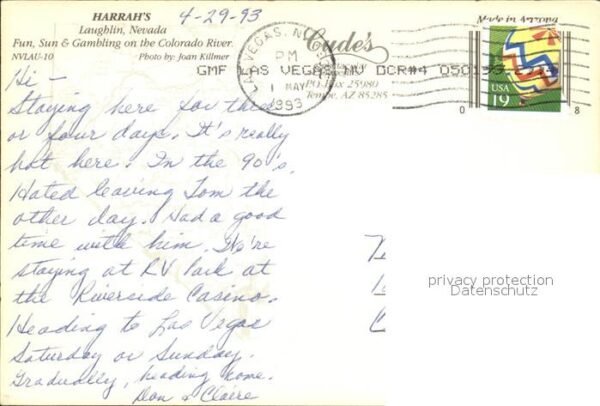 HARRAH'S
Laughlin, Nevada
Fun, Sun & Gambling on the Colorado River.
NVLAU-10 Photo by: Joan Killmer
4-29-93
Made in Arizona
LAS VEGAS, N
PM
1 MAY
1993
GMF LAS VEGAS, NV DCR#4 050193
PO Box 25980
Tempe, AZ 85285
USA
19
0 8
Hi —
Staying here for three
or four days. It's really
hot here. In the 90's.
Hated leaving Tom the
other day. Had a good
time with him. We're
staying at RV Park at
the Riverside Casino.
Heading to Las Vegas
Saturday or Sunday.
Gradually, heading home.
Don & Claire
privacy protection
Datenschutz